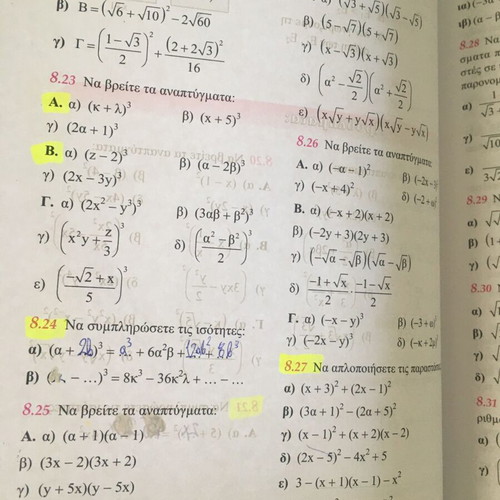 β) Β=(√6+√10)²−2√60
γ) Γ=((1−√3)/2)²+(2+2√3)²/16
8.23 Να βρείτε τα αναπτύγματα:
Α. α) (κ+λ)³ β) (x+5)³
γ) (2α+1)³
Β. α) (z−2)³ β) (α−2β)³
γ) (2x−3y)³
Γ. α) (2x²−y³)³ β) (3αβ+β²)³
γ) (x²y+z/3)³ δ) ((α²−β²)/2)³
ε) ((−√2+x)/5)³
8.24 Να συμπληρώσετε τις ισότητες:
α) (α+2b)³=a³+6α²β+12ab²+8b³
β) (... − ...)³=8κ³−36κ²λ+... − ...
8.25 Να βρείτε τα αναπτύγματα:
Α. α) (α+1)(α−1)
β) (3x−2)(3x+2)
γ) (y+5x)(y−5x)
(√3+√5)(√3−√5)
β) (5−√7)(5+√7)
γ) (x−√3)(x+√3)
δ) (α²−√2/2)(α²+√2/2)
ε) (x√y+y√x)(x√y−y√x)
8.26 Να βρείτε τα αναπτύγματα:
Α. α) (−α−1)²
γ) (−x+4)²
Β. α) (−x+2)(x+2)
β) (−2y+3)(2y+3)
γ) (−√α−√β)(√α−√β)
δ) (−1+√x)/2 · (−1−√x)/2
Γ. α) (−x−y)³
γ) (−2x−y)³
8.27 Να απλοποιήσετε τις
α) (x+3)²+(2x−1)²
β) (3α+1)²−(2α+5)²
γ) (x−1)²+(x+2)(x−2)
δ) (2x−5)²−4x²+5
ε) 3−(x+1)(x−1)−x²
8.28 Να
σματα
στές σε
παρονομ
8.29
8.30
8.31